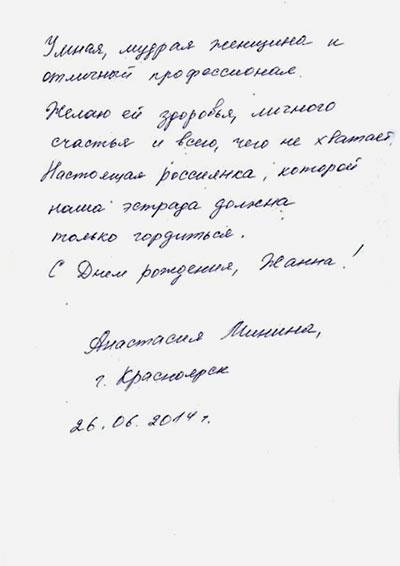 Умная, мудрая женщина и
отличный профессионал.
Желаю ей здоровья, личного
счастья и всего, чего не хватает.
Настоящая россиянка, которой
наша эстрада должна
только гордиться.
С Днем рождения, Жанна!
Анастасия Минина,
г. Красноярск
26.06.2014г.